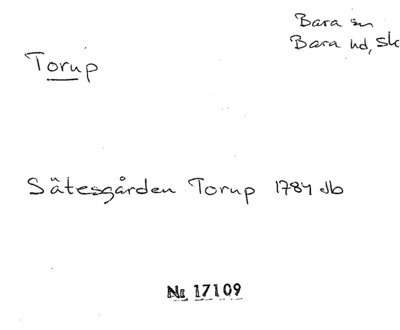 Bara sn
Bara hd, Sk
Torup
Sätesgården Torup 1784 db
Nr 17109